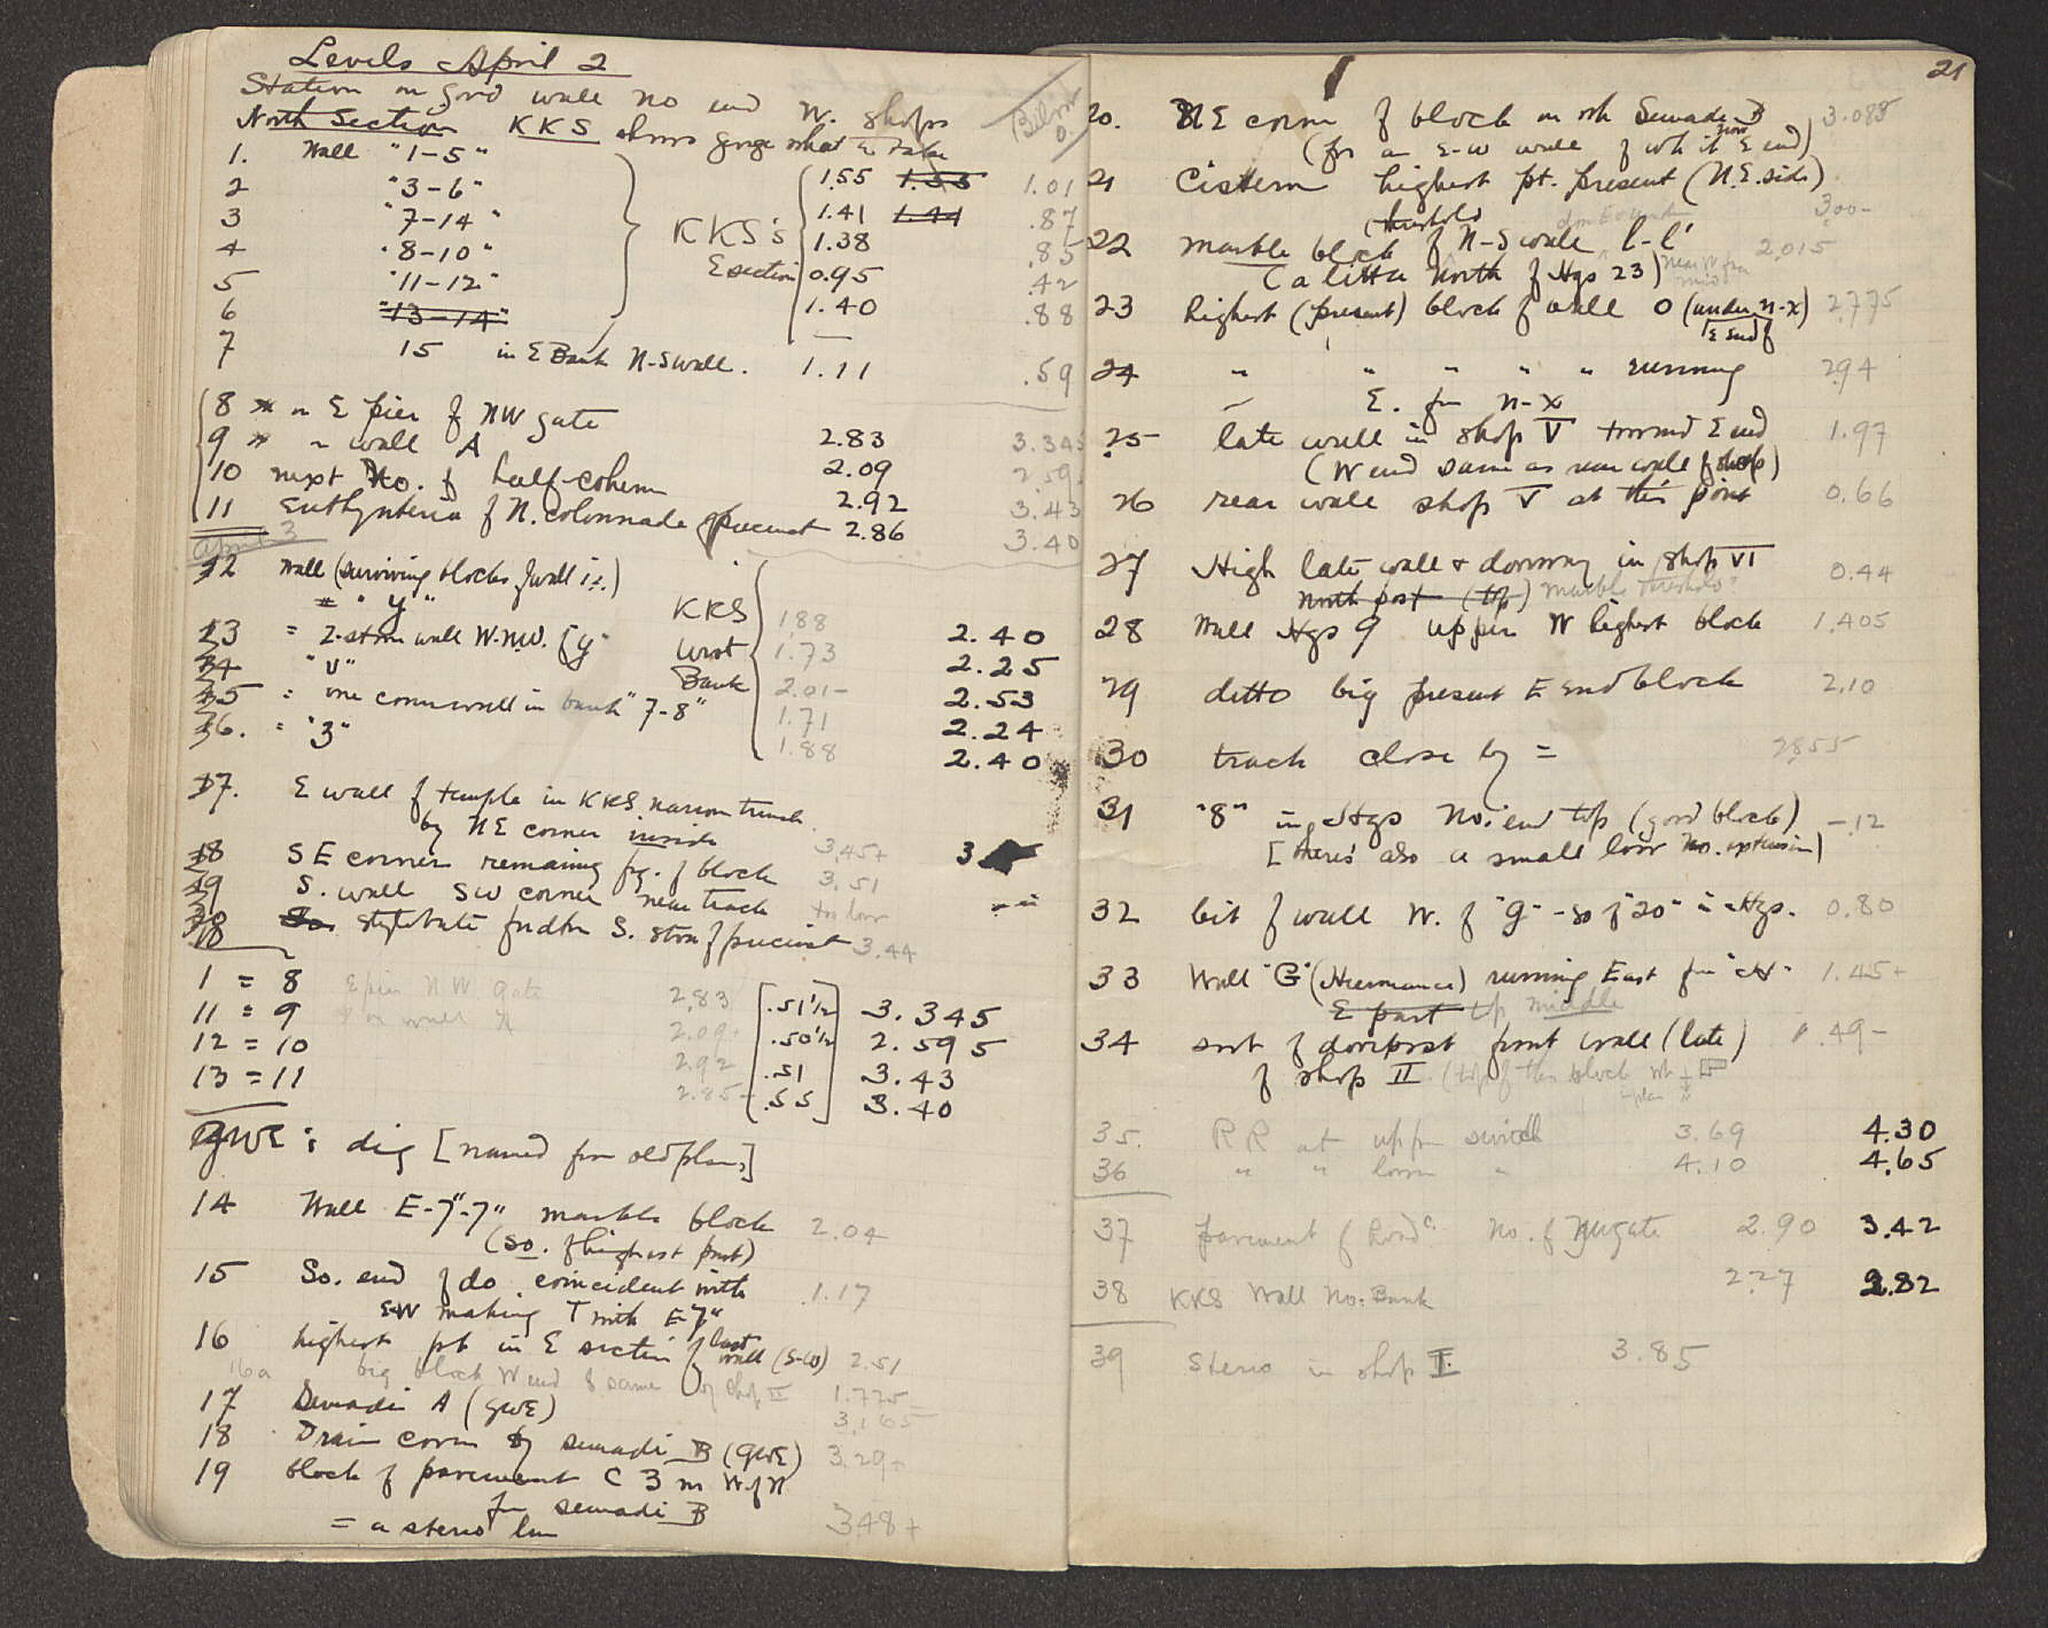 Levels April 2
Station on good wall no end W. shops
North Section KKS shows gorge what to take
Below 0.
1. Wall "1-5" 1.55 1.55 1.01
2 "3-6" 1.41 1.44 .87
3 "7-14" KKS's 1.38 .85
4 "8-10" E section 0.95 .42
5 "11-12" 1.40 .88
6 "13-14" —
7 15 in E Bank N-S wall. 1.11 .59
8 on E pier of NW gate 2.83 3.345
9 " wall A 2.09 2.59
10 next No. of half-column 2.92 3.43
11 Euthynteria of N. colonnade of precinct 2.86 3.40
April 3
12 Wall (surviving blocks of wall i.:)
= "y" KKS 1.88 2.40
13 = 2-stone wall W.NW. of y West 1.73 2.25
14 "v" Bank 2.01- 2.53
15 = one corner wall in bank "7-8" 1.71 2.24
16. = "3" 1.88 2.40
17. E wall of temple in KKS narrow trench
by NE corner inside 3.45+
18 SE corner remaining frg. of block 3.51 3
19 S. wall SW corner near track too low
20 So. stylobate fndtn S. stoa of precinct 3.44
18
1 = 8 E pier N.W. gate 2.83 .51½ 3.345
11 = 9 wall A 2.09 .50½ 2.595
12 = 10 2.92 .51 3.43
13 = 11 2.85- .55 3.40
GWE : dig [named from old plans]
14 Wall E-7"-7" marble block 2.04
(so. of highest part)
15 So. end of do coincident with 1.17
E-W making T with E-7"
16 highest pt in E section of last wall (S-W) 2.51
16a big block W end of same of shop II 1.775
17 Semadi A (GWE) 3.165
18 Drain corner by semadi B (GWE) 3.29+
19 block of pavement C 3 m W of N
from semadi B 3.48+
= a stereo
21
20. NE corner of block on wh Semadi B 3.085
(for an E-W wall of wh it now E end)
21 Cistern highest pt. present (N.E. side) 3.00-
(threshold
22 marble block of N-S wall l-l' 2.015
(a little North of Hgs 23)
23 highest (present) block of wall O (under n-x) 2.775
E end of
24 " " " " " running 2.94
E. from n-x
25 late wall in shop V toward E end 1.97
(W end same as rear wall of shop)
26 rear wall shop V at this point 0.66
27 High late wall & doorway in shop VI 0.44
North post (top) marble threshold
28 Wall Hgs 9 upper W highest block 1.405
29 ditto big present E end block 2.10
30 track close by = 2.855
31 "8" in Hgs No. end top (good block) -.12
[there's also a small low No. extension]
32 bit of wall W. of "g" - so of "20" in Hgs. 0.80
33 Wall "G" (Hermance) running East from "H" 1.45+
E part top middle
34 sort of doorpost front wall (late) .49-
of shop II (top of the block wh
35. RR at upper switch 3.69 4.30
36 " " lower " 4.10 4.65
37 pavement of Road No. of NW gate 2.90 3.42
38 KKS Wall No. Bank 2.27 2.82
39 Stereo in shop I 3.85